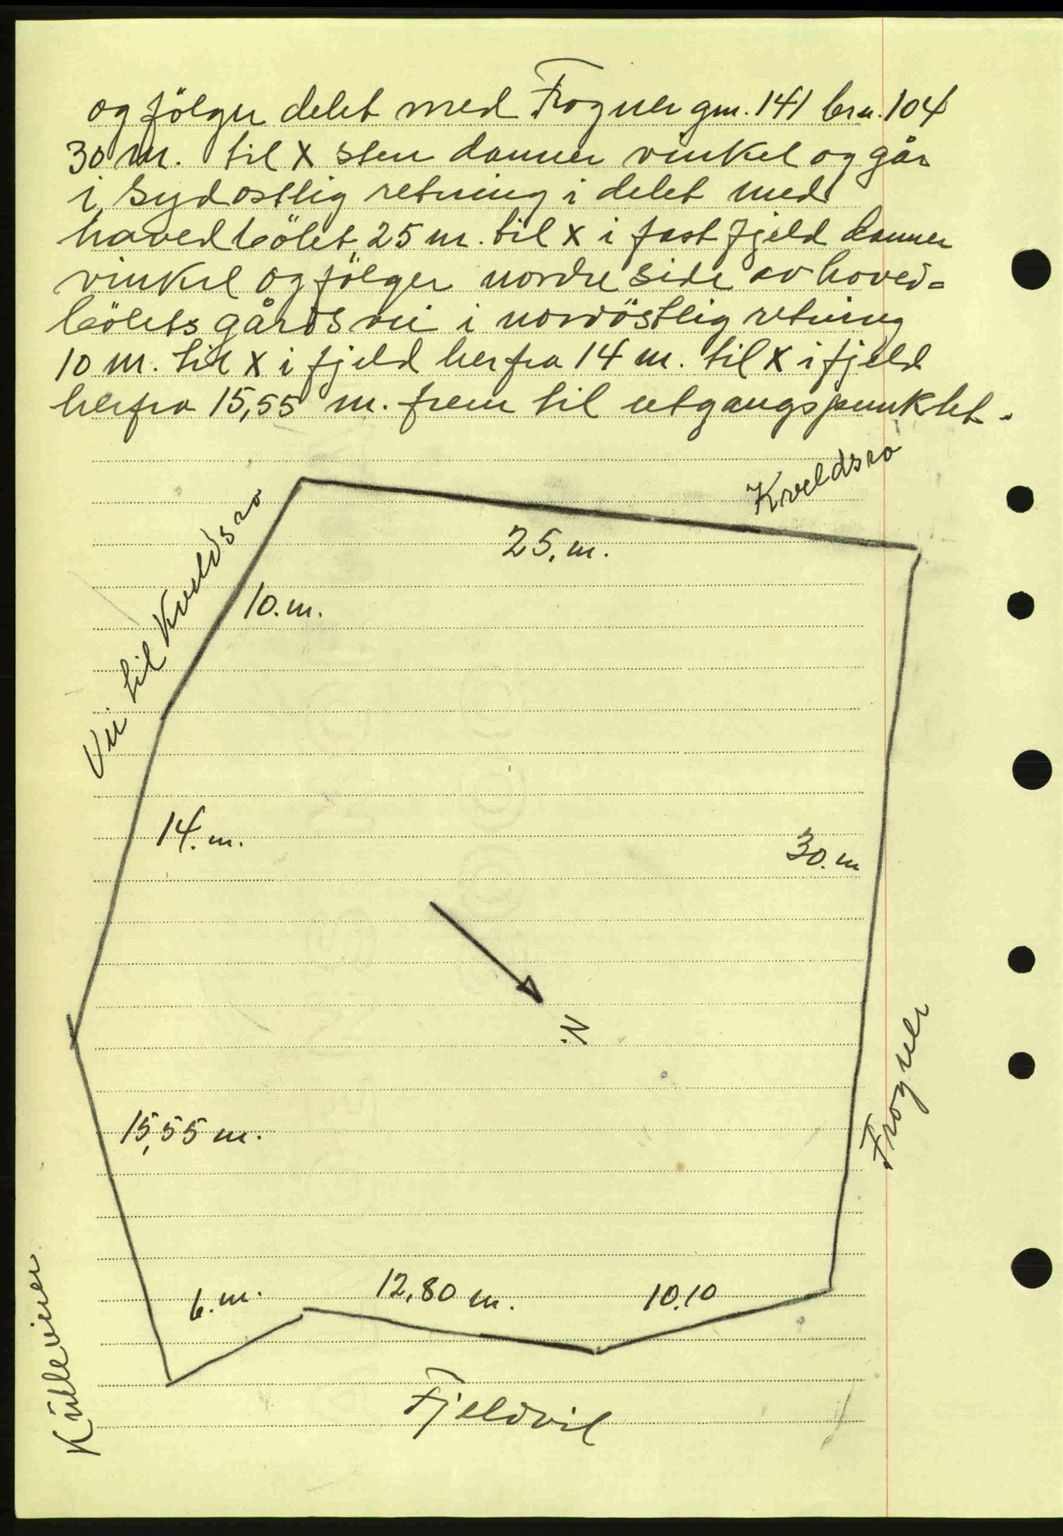 og følger delet med Frogner gnr. 141 brn. 104
30 m. til X sten danner vinkel og går
i sydostlig retning i delet med
hovedbölet 25 m. til x i fast fjeld danner
vinkel og følger nordre side av hoved-
bölets gårdsvei i nordöstlig retning
10 m. til X i fjeld herfra 14 m. til X i fjeld
herfra 15,55 m. frem til utgangspunktet.
Kveldsro
25. m.
Vei til Kveldsro
10. m.
14. m.
30. m
N.
Frogner
15,55 m.
6. m.
12,80 m.
10,10
Fjeldvil